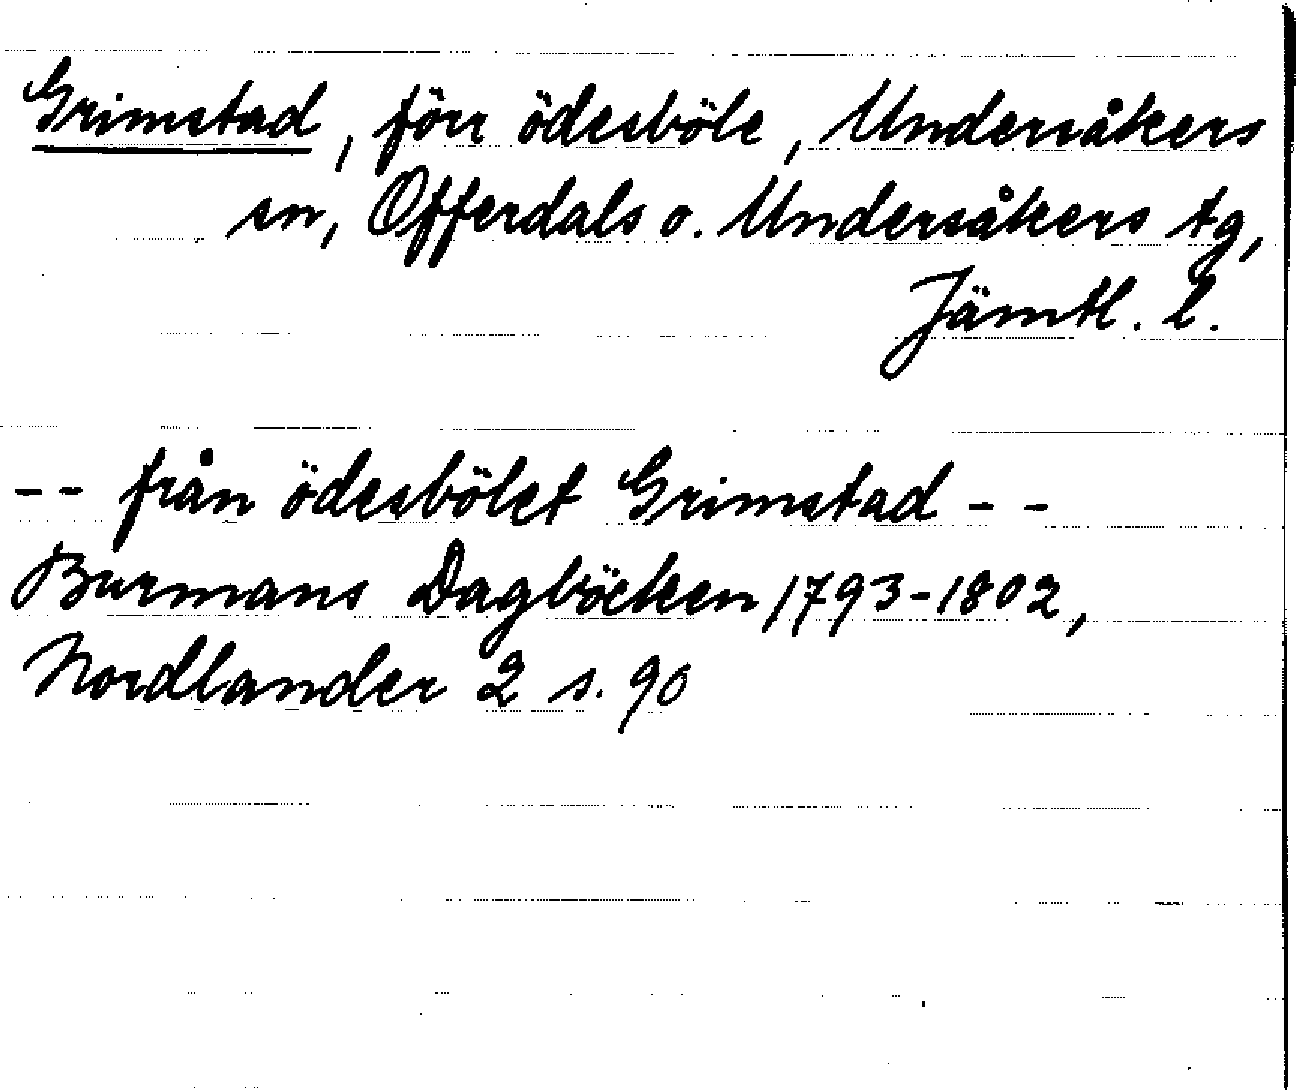 Grimstad, förr ödesböle, Undersåkers
sn, Offerdals o. Undersåkers tg,
Jämtl. l.
-- från ödesbölet Grimstad --
Burmans Dagböcken 1793-1802,
Nordlander 2 s. 90